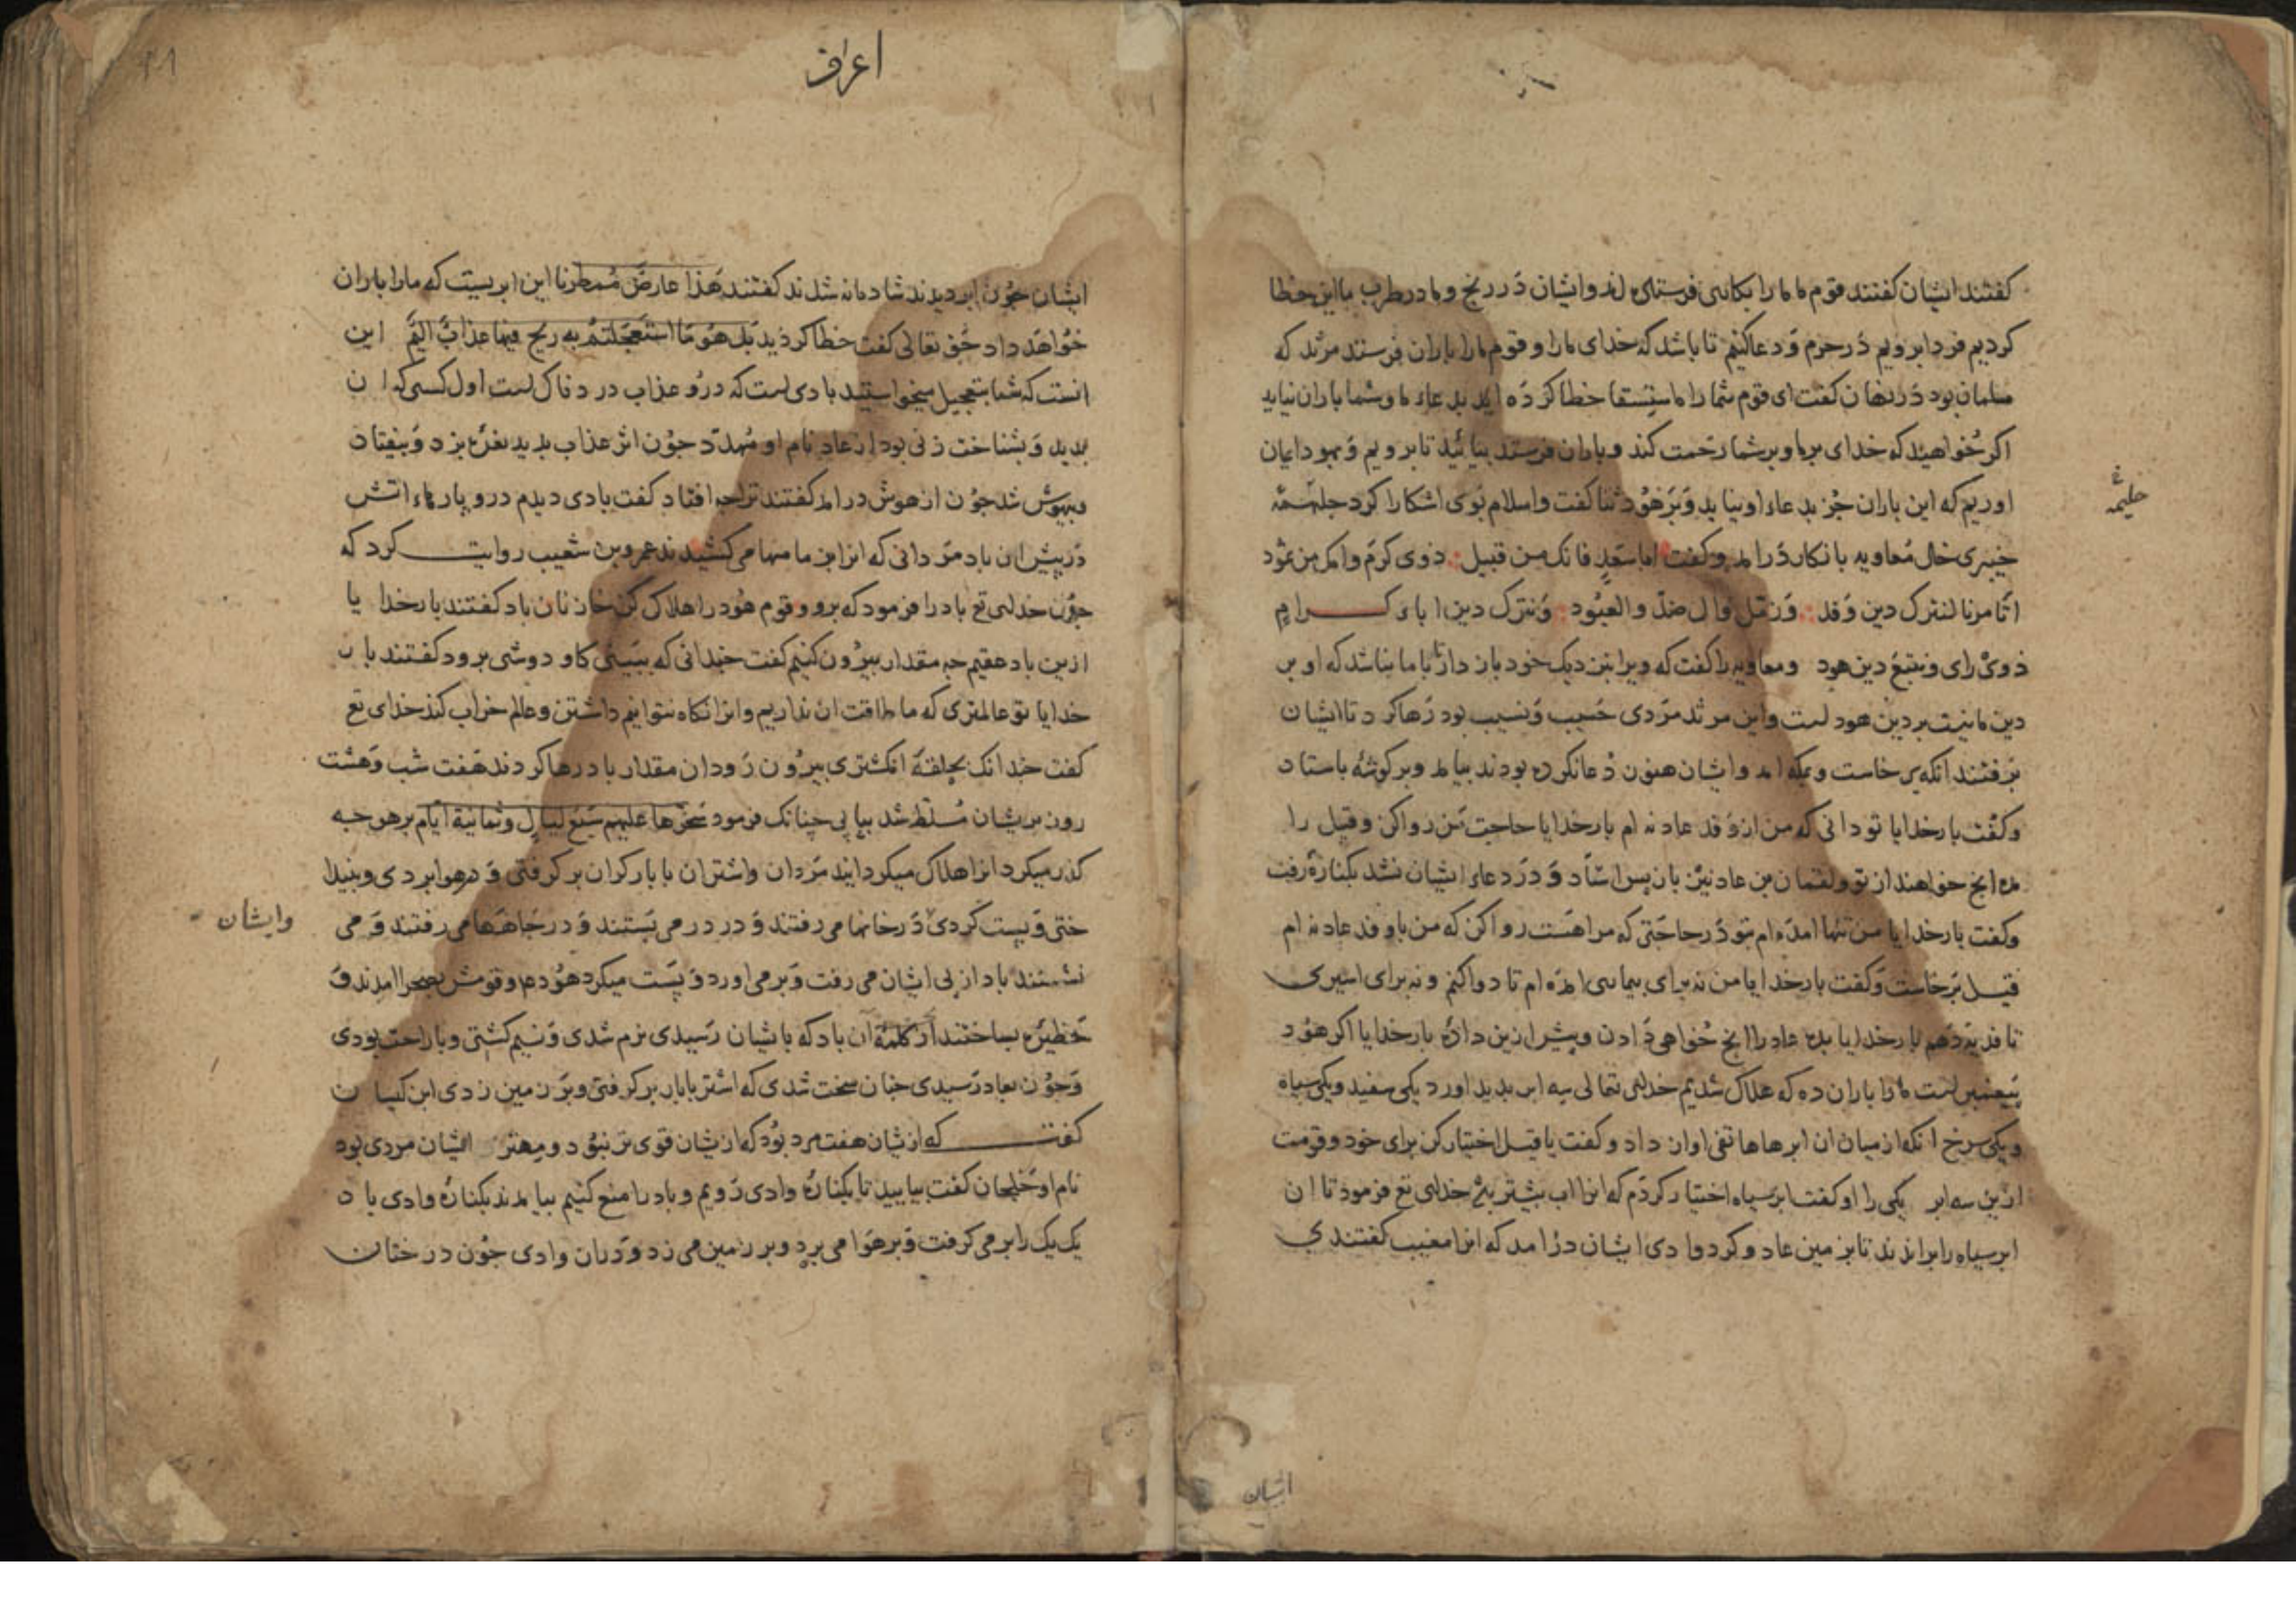 كفتند ايشان كفتند قوم ما ما را بكاری فرستاده اند و ايشان در رنج و ما در طرب ما اين خطا
كرديم فردا برويم در حرم و دعا كنيم تا باشد كه خدای ما را و قوم ما را باران فرستد مرثد كه
مسلمان بود در نهان كفت ای قوم شما را ما استسقا خطا كرده ايد بدعاء ما و شما باران نيايد
اكر خواهيد كه خدای بر ما و بر شما رحمت كند و باران فرستد بيائيد تا برويم و بهود ايمان
اوريم كه اين باران جز بدعاء او نيايد و بر هود ثنا كفت و اسلام بوی اشكارا كرد جلهمه
حليمه
خيبری خال معاويه بانكار درامد و كفت ابا سعد فانك من قبيل ذوی كرم و امك من ثمود
اتامرنا لنترك دين وفد ورمل وال ضد والعبود ونترك دين اباء كرام
ذوی رای ونتبع دين هود و معاويه را كفت كه ويرا بنزديك خود باز دار تا با ما نباشد كه او بر
دين ما نيست بر دين هود است و اين مرثد مردی حسيب و نسيب بود رها كرد تا ايشان
برفتند انكه برخاست و بمكه امد و ايشان هنوز دعا نكرده بودند بيامد و بر كوشه باستاد
و كفت بار خدايا تو دانی كه من از وفد عاد نه ام بار خدايا حاجت من روا كن و قيل را
مده انچ خواهند از تو و لقمان بن عاد نيز باز پس استاد و در دعاء ايشان نشد بكناره رفت
و كفت بار خدايا من تنها امده ام بتو در حاجتی كه مرا هست روا كن كه من با وفد عاد نه ام
قيل برخاست و كفت بار خدايا من نه برای بيماری امده ام تا دوا كنم و نه برای اسيری
تا فديه دهم بار خدايا بده عاد را انچ خواهی دادن و پيش ازين داده بار خدايا اكر هود
پيغمبر است ما را باران ده كه هلاك شديم خدای تعالی سه ابر بديد اورد يكی سفيد و يكی سياه
و يكی سرخ انكه از ميان ان ابرها هاتفی اواز داد و كفت يا قيل اختيار كن برای خود و قومت
ازين سه ابر يكی را او كفت ابر سياه اختيار كردم كه انرا اب بيشتر بود خدای تع فرمود تا ان
ابر سياه را براندند تا بزمين عاد و كرد وادی ايشان درامد كه انرا مغيث كفتندی
ايشان
اعراف
ايشان چون ابر ديدند شادمانه شدند كفتند هذا عارض ممطرنا اين ابريست كه ما را باران
خواهد داد حق تعالی كفت خطا كرديد بل هو ما استعجلتم به ريح فيها عذاب اليم اين
انست كه شما بتعجيل ميخواستيد بادی است كه درو عذاب دردناك است اول كسی كه ان
بديد و بشناخت زنی بود از عاد نام او مهدد چون اثر عذاب بديد نعره بزد و بيفتاد
و بيهوش شد چون از هوش درامد كفتند ترا چه افتاد كفت بادی ديدم درو پارهاء اتش
در پيش ان باد مردانی كه انرا بزمامها می كشيدند عمرو بن شعيب روايت كرد كه
چون خدای تع باد را فرمود كه برو و قوم هود را هلاك كن خازنان باد كفتند بار خدايا
ازين باد عقيم چه مقدار بيرون كنيم كفت چندانی كه ببينی كاو دوشی برود كفتند بار
خدايا تو عالمتری كه ما طاقت ان نداريم و انرا نكاه نتوانيم داشتن و عالم خراب كند خدای تع
كفت چندانك بحلقه انكشتری بيرون رود ان مقدار باد رها كردند هفت شب و هشت
روز بريشان مسلط شد بياپی چنانك فرمود سخرها عليهم سبع ليال وثمانية ايام بر هر چه
كذر ميكرد انرا هلاك ميكردانيد مردان و اشتران با بار كران بركرفتی و در هوا بردی و بينداختی
و پست كردی در خانها می رفتند و در در می بستند و در چاهها می رفتند و می
وايشان
نشستند باد از پی ايشان می رفت و بر می اورد و پست ميكرد هود ع و قومش بصحرا امدند و
حظيره بساختند از كلمه ان باد كه بايشان رسيدی نرم شدی و نسيم كشتی و با راحت بودی
و چون بعاد رسيدی چنان سخت شدی كه اشتر با بار بركرفتی و بر زمين زدی ابن كيسان
كفت كه ازيشان هفت مرد بود كه ازيشان قوی تر نبود و مهتر ايشان مردی بود
نام او خلجان كفت بياييد تا بكناره وادی رويم و باد را منع كنيم بيامدند بكناره وادی باد
يك يك را بر می كرفت و بر هوا می برد و بر زمين می زد و دران وادی چون درختان